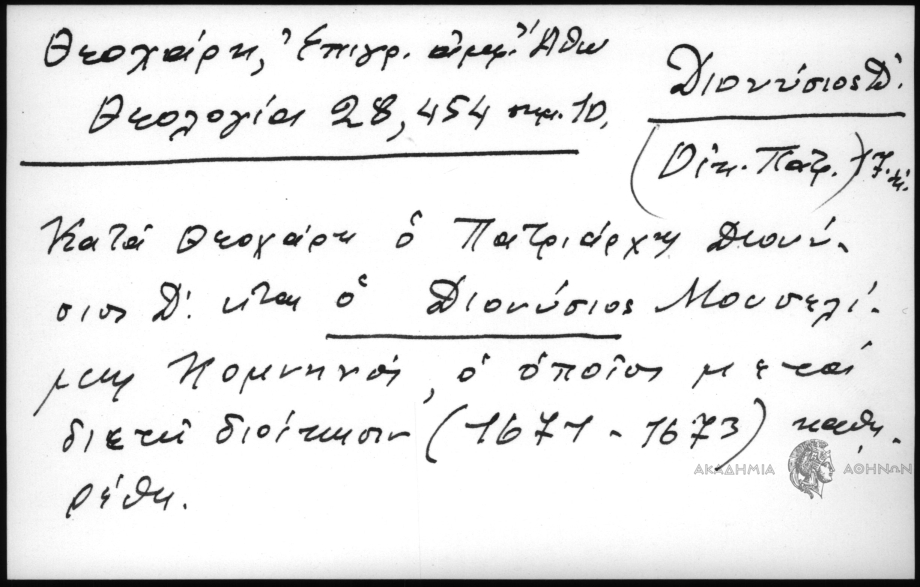 Θεοχάρη, Ἐπιγρ. ἀμφ. Ἄθω
Θεολογία 28, 454 σημ. 10,
Διονύσιος Δ΄.
(Οἰκ. Πατρ.) 17. αἰ.
Κατά Θεοχάρη ὁ Πατριάρχης Διονύ-
σιος Δ΄. εἶναι ὁ Διονύσιος Μουσελί-
μης Κομνηνός, ὁ ὁποῖος μετά
διετῆ διοίκησιν (1671-1673) καθῃ-
ρέθη.
ΑΚΑΔΗΜΙΑ ΑΘΗΝΩΝ